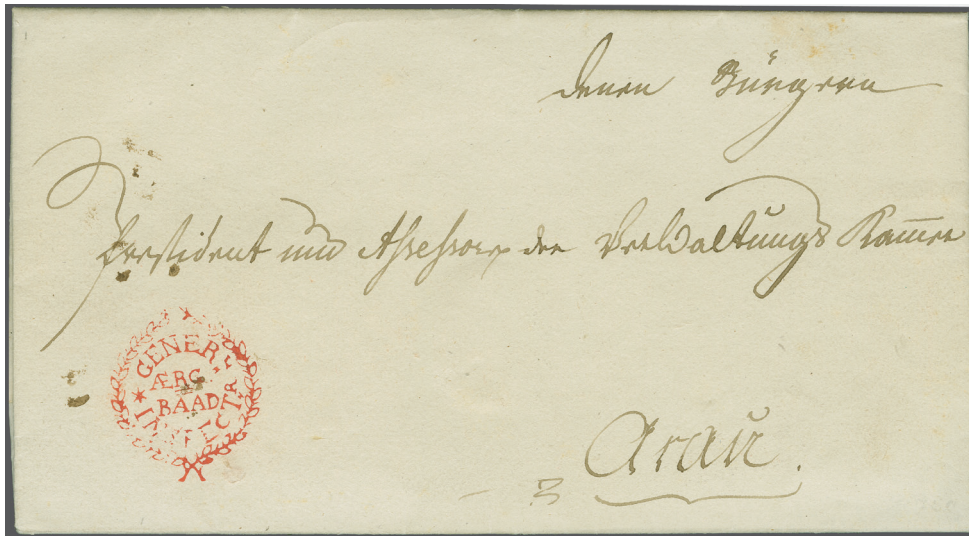 denen Bürgern
President und Assessoren der Verwaltungs Kam̅er
GENER
ÆRG
BAAD
Arau.